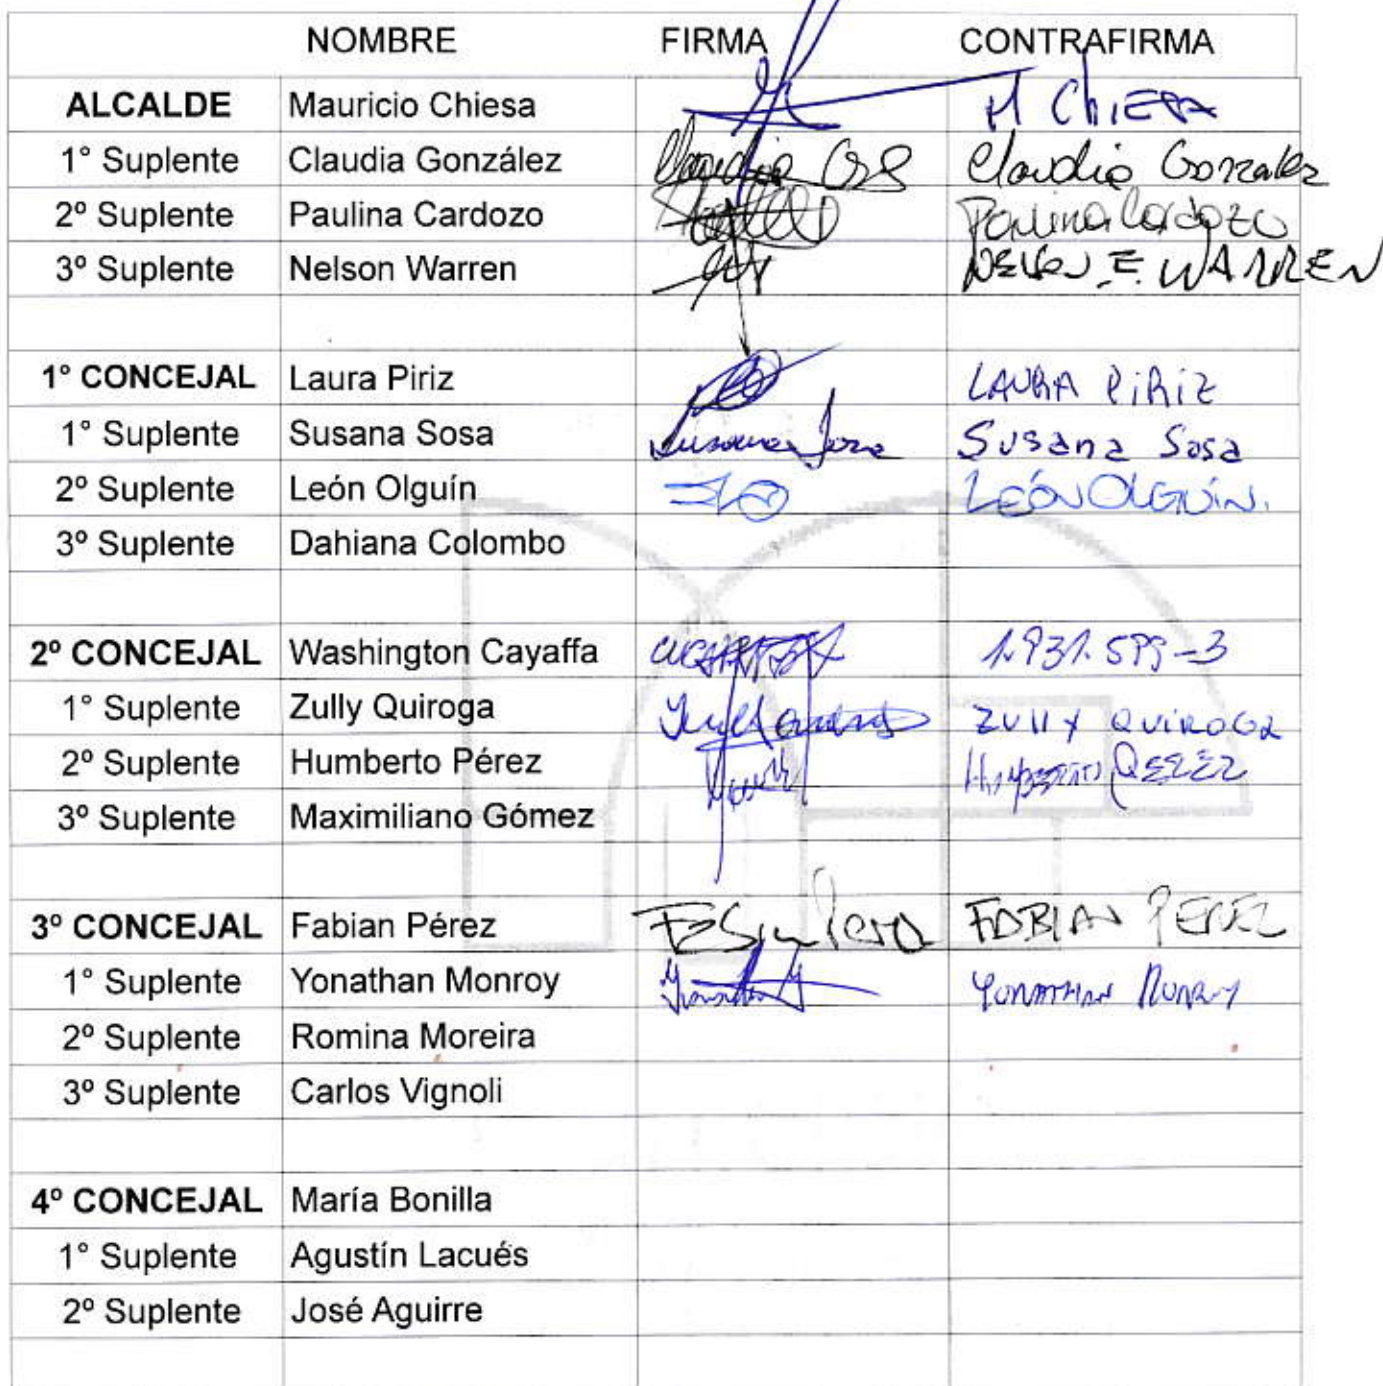 NOMBRE FIRMA CONTRAFIRMA
ALCALDE Mauricio Chiesa M CHIESA
1° Suplente Claudia González Claudia Gonzalez
2º Suplente Paulina Cardozo Paulina Cardozo
3º Suplente Nelson Warren NELSON E. WARREN
1° CONCEJAL Laura Piriz LAURA PiRiZ
1° Suplente Susana Sosa Susana Sosa Susana Sosa
2º Suplente León Olguín LEÓN OLGUÍN.
3º Suplente Dahiana Colombo
2º CONCEJAL Washington Cayaffa 1.931.599-3
1° Suplente Zully Quiroga ZULLY QUIROGA
2º Suplente Humberto Pérez Humberto PEREZ
3º Suplente Maximiliano Gómez
3º CONCEJAL Fabian Pérez FABIAN PEREZ
1° Suplente Yonathan Monroy YONATHAN MONROY
2º Suplente Romina Moreira
3º Suplente Carlos Vignoli
4º CONCEJAL María Bonilla
1° Suplente Agustín Lacués
2º Suplente José Aguirre